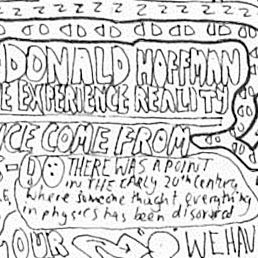 Z Z Z Z Z Z Z Z Z Z Z Z Z
DONALD HOFFMAN
E EXPERIENCE REALITY
CE COME FROM
THERE WAS A POINT
IN THE EARLY 20th Century
where someone thought everything
in physics has been discovered
OUR
WE HAV